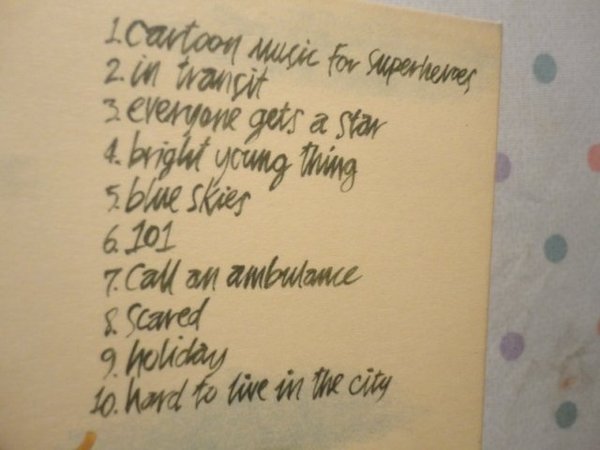 1. cartoon music for superheroes
2. in transit
3. everyone gets a star
4. bright young thing
5. blue skies
6. 101
7. call an ambulance
8. scared
9. holiday
10. hard to live in the city